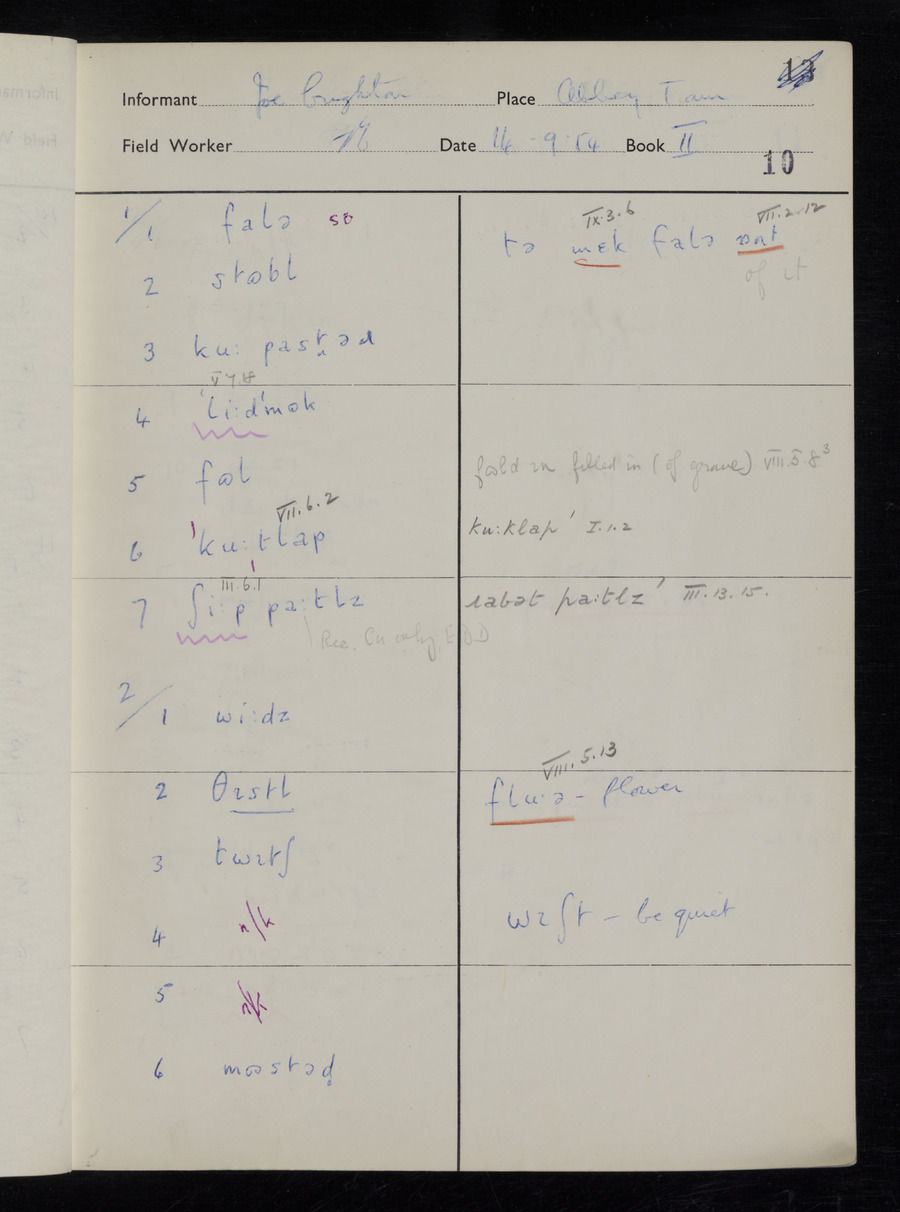 13
Informant Joe Crighton Place Abbey Town
Field Worker Date 14 . 9 . 54 Book II
10
1/1 falə sб
IX.3.6 VII.2.12
tə mɛk falə ɷnt
of it
2 stɷbl
3 ku: pastəd
V.7.18
4 ˈli:dˈmɷk
5 fɷl
fɷld ɪn filled in (of grave) VIII.5.8³
VII.6.2
6 ˈku:tlap
ku:klapˈ I.1.2
III.6.1
7 ʃi:p pa:tlz
ɹabət pa:tlzˈ III.13.15.
Rec. Cu only, EDD
2/1 wi:dz
VIII.5.13
2 θɪstl
flu:ə – flower
3 twɪtʃ
4 n/k
wɪʃt – be quiet
5 n/k
6 mɷstəd